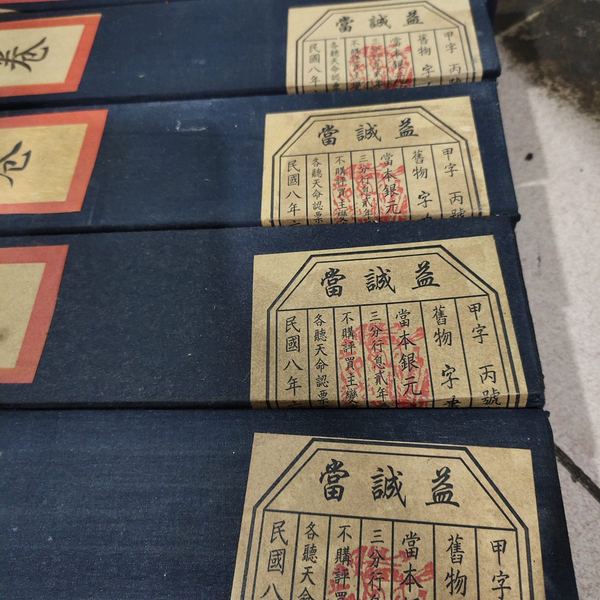 卷
益誠當
甲字 丙號
舊物 字
當本銀元
三分行息貳年
不購評買主變
各聽天命認票
民國八年
益誠當
甲字 丙號
舊物 字
當本銀元
三分行息貳年
不購評買主變
各聽天命認票
民國八年
益誠當
甲字 丙號
舊物 字
當本銀元
三分行息貳年
不購評買主變
各聽天命認票
民國八年
益誠當
甲字
舊物
當本
三分行息
不購評買
各聽天命
民國八